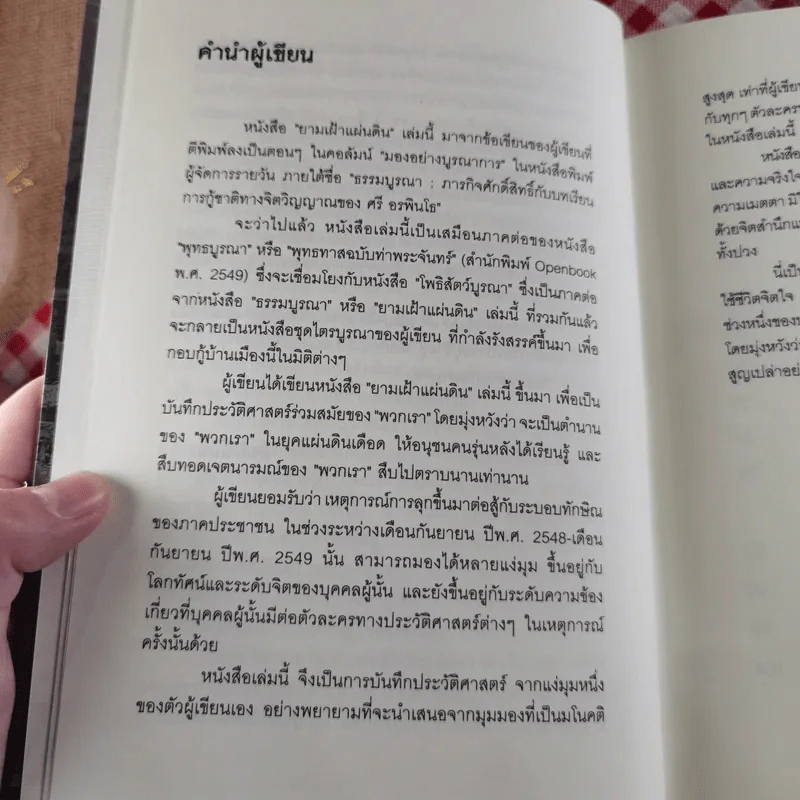 คำนำผู้เขียน
หนังสือ "ยามเฝ้าแผ่นดิน" เล่มนี้ มาจากข้อเขียนของผู้เขียนที่
ตีพิมพ์ลงเป็นตอนๆ ในคอลัมน์ "มองอย่างบูรณาการ" ในหนังสือพิมพ์
ผู้จัดการรายวัน ภายใต้ชื่อ "ธรรมบูรณา : ภารกิจศักดิ์สิทธิ์กับบทเรียน
การกู้ชาติทางจิตวิญญาณของ ศรี อรพินโธ"
จะว่าไปแล้ว หนังสือเล่มนี้เป็นเสมือนภาคต่อของหนังสือ
"พุทธบูรณา" หรือ "พุทธทาสฉบับท่าพระจันทร์" (สำนักพิมพ์ Openbook
พ.ศ. 2549) ซึ่งจะเชื่อมโยงกับหนังสือ "โพธิสัตว์บูรณา" ซึ่งเป็นภาคต่อ
จากหนังสือ "ธรรมบูรณา" หรือ "ยามเฝ้าแผ่นดิน" เล่มนี้ ที่รวมกันแล้ว
จะกลายเป็นหนังสือชุดไตรบูรณาของผู้เขียน ที่กำลังรังสรรค์ขึ้นมา เพื่อ
กอบกู้บ้านเมืองนี้ในมิติต่างๆ
ผู้เขียนได้เขียนหนังสือ "ยามเฝ้าแผ่นดิน" เล่มนี้ ขึ้นมา เพื่อเป็น
บันทึกประวัติศาสตร์ร่วมสมัยของ "พวกเรา" โดยมุ่งหวังว่า จะเป็นตำนาน
ของ "พวกเรา" ในยุคแผ่นดินเดือด ให้อนุชนคนรุ่นหลังได้เรียนรู้ และ
สืบทอดเจตนารมณ์ของ "พวกเรา" สืบไปตราบนานเท่านาน
ผู้เขียนยอมรับว่า เหตุการณ์การลุกขึ้นมาต่อสู้กับระบอบทักษิณ
ของภาคประชาชน ในช่วงระหว่างเดือนกันยายน ปีพ.ศ. 2548-เดือน
กันยายน ปีพ.ศ. 2549 นั้น สามารถมองได้หลายแง่มุม ขึ้นอยู่กับ
โลกทัศน์และระดับจิตของบุคคลผู้นั้น และยังขึ้นอยู่กับระดับความข้อง
เกี่ยวที่บุคคลผู้นั้นมีต่อตัวละครทางประวัติศาสตร์ต่างๆ ในเหตุการณ์
ครั้งนั้นด้วย
หนังสือเล่มนี้ จึงเป็นการบันทึกประวัติศาสตร์ จากแง่มุมหนึ่ง
ของตัวผู้เขียนเอง อย่างพยายามที่จะนำเสนอจากมุมมองที่เป็นมโนคติ
สูงสุด เท่าที่ผู้เขีย
กับทุกๆ ตัวละคร
ในหนังสือเล่มนี้
หนังสือ
และความจริงใจ
ความเมตตา มี
ด้วยจิตสำนึกแ
ทั้งปวง
นี่เป็
ใช้ชีวิตจิตใจ
ช่วงหนึ่งของ
โดยมุ่งหวังว่
สูญเปล่าอย่